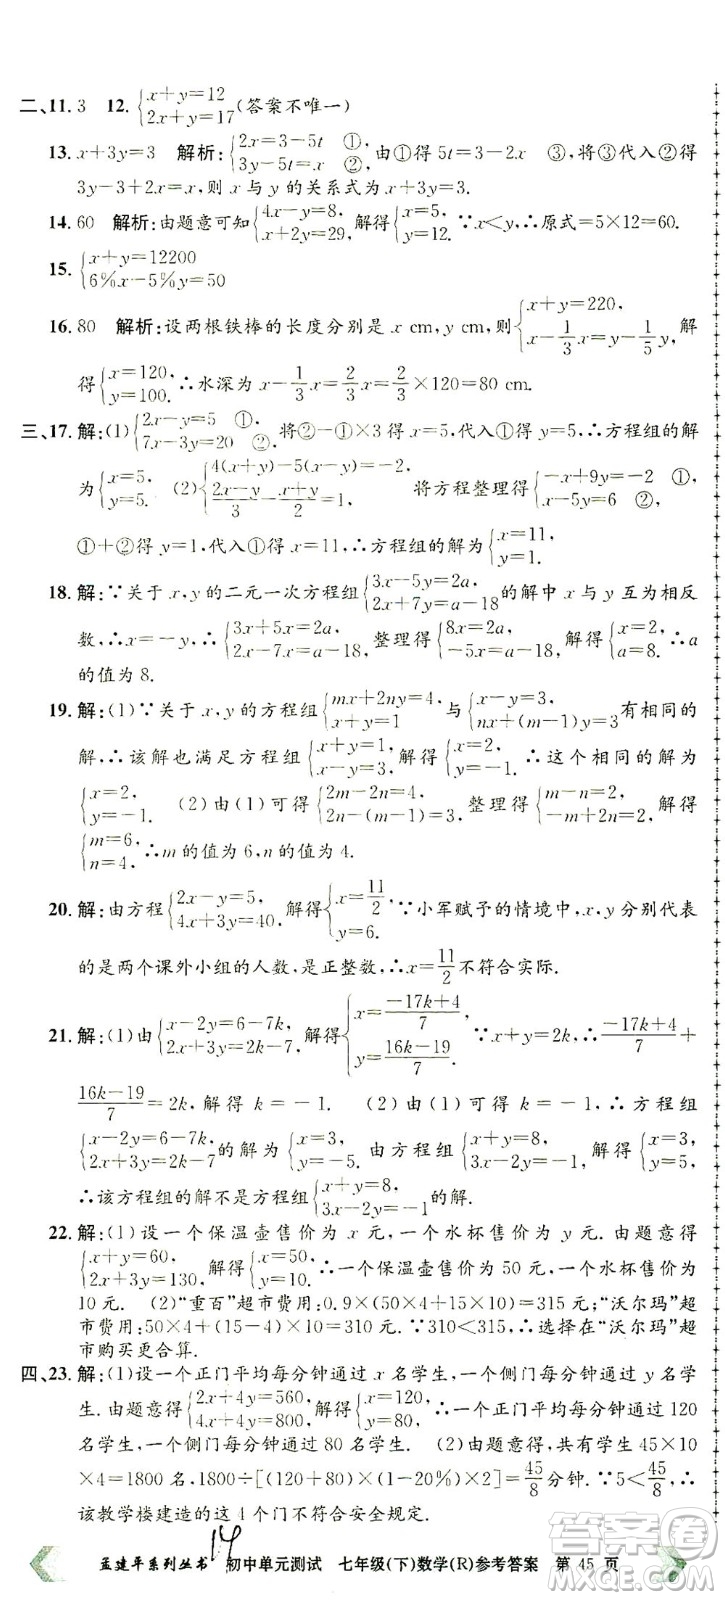 二、11. 3　12. {x+y=12
2x+y=17(答案不唯一)
13. x+3y=3　解析:{2x=3-5t　①
3y-3=5t　②,由①得5t=3-2x　③,将③代入②得
3y-3+2x=5t,则x与y的关系式为x+3y=3.
14. 60　解析:由题意可知{4x-y=8,
x+2y=29,解得{x=5,
y=12.∵x<y,∴原式=5×12=60.
15. {x+y=12200
6%x+5%y=50
16. 80　解析:设两根铁棒的长度分别是x cm,y cm,则{x+y=220,
x-1/3x=y-1/5y,解
得{x=120,
y=100.∴水深为x-1/3x=2/3×120=80 cm.
三、17. 解:(1){2x-y=5　①
7x-3y=20　②.将②-①×3得x=5,代入①得y=5,∴方程组的解
为{x=5,
y=5. (2){4(x+y)-5(x-y)=-2,
2x-y/3-x+y/2=1,　将方程整理得{-x+9y=-2　①
x-5y=6　②,
①+②得y=1,代入①得x=11,∴方程组的解为{x=11,
y=1.
18. 解:∵关于x,y的二元一次方程组{3x-5y=2a,
2x+7y=a-18的解中x与y互为相反
数,∴x=-y,∴{3x+5x=2a,
2x-7x=a-18,整理得{8x=2a,
-5x=a-18,解得{x=2,
a=8.∴a
的值为8.
19. 解:(1)∵关于x,y的方程组{mx+2ny=4,
x+y=1与{x-y=3,
nx+(m-1)y=3有相同的
解,∴该解也满足方程组{x+y=1,
x-y=3,解得{x=2,
y=-1.∴这个相同的解为
{x=2,
y=-1. (2)由(1)可得{2m-2n=4,
2n-(m-1)=3,整理得{m-n=2,
-m+2n=2,解得
{m=6,
n=4,∴m的值为6,n的值为4.
20. 解:由方程{2x-y=5,
4x+3y=40,解得{x=11/2,
y=6.∵小军赋予的情境中,x,y分别代表
的是两个课外小组的人数,是正整数,∴x=11/2不符合实际.
21. 解:(1)由{x-2y=6-7k,
2x+3y=2k-7,解得{x=-17k+4/7,
y=16k-19/7.∵x+y=2k,∴-17k+4/7+
16k-19/7=2k,解得k=-1. (2)由(1)可得方程组
{x-2y=6-7k
2x+3y=2k-7的解为{x=3,
y=-5.由方程组{x+y=8,
x-y=3,解得{x=5.5,
y=2.5,
∴该方程组的解不是方程组{x+y=8,
x-y=3的解.
22. 解:(1)设一个保温壶售价为x元,一个水杯售价为y元.由题意得
{x+y=60,
2x+3y=130,解得{x=50,
y=10.∴一个保温壶售价为50元,一个水杯售价为
10元. (2)“重百”超市费用:0.9×(50×4+15×10)=315元;“沃尔玛”超
市费用:50×4+(15-4)×10=310元.∵310<315,∴到“沃尔玛”超
市购买更合算.
四、23. 解:(1)设一个正门平均每分钟通过x名学生,一个侧门每分钟通过y名学
生.由题意得{2x+4y=560,
4x+4y=800,解得{x=120,
y=80.∴一个正门平均每分钟通过120
名学生,一个侧门每分钟通过80名学生. (2)由题意得,共有学生45×10
×4=1800名,1800÷[(120+80)×(1-20%)×5]=45/8分钟.∵5<45/8,∴
该教学楼建造的这4个门不符合安全规定.
孟建平系列丛书　14　初中单元测试　七年级(下)数学(R)参考答案　第 45 页